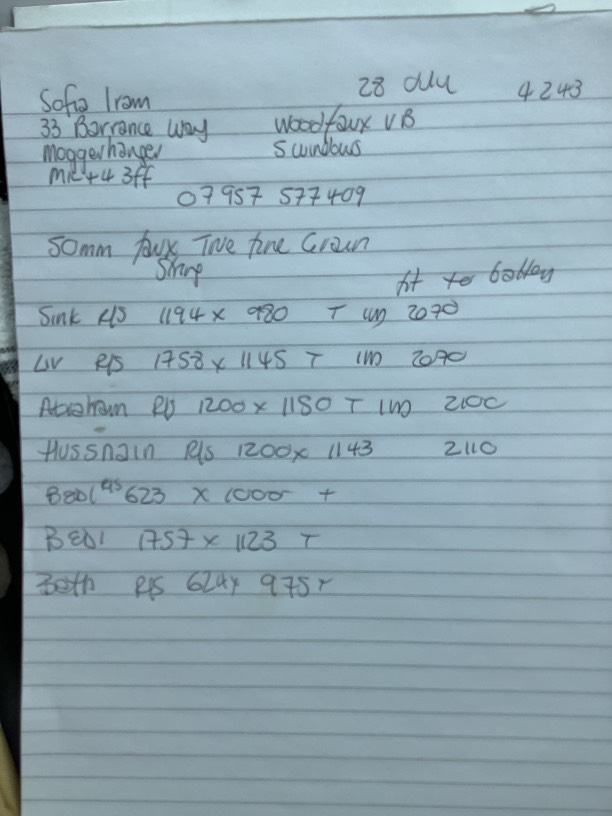 28 4243
Sofia Iram
33 Barrance Way Woodfaux VB
Moggerhanger Swindows
MK44 3ff
07957 577409
50mm faux True fine Grain
String
fit to batten
Sink R/S 1194 x 980 T 1m 2070
LIV R/S 1758 x 1145 T 1m 2070
Abraham R/S 1200 x 1150 T 1m 2100
Hussnain R/s 1200x 1143 2110
BED1 R/S 623 x 1000 +
BED1 1757 x 1123 T
Bath R/S 624x 975 T